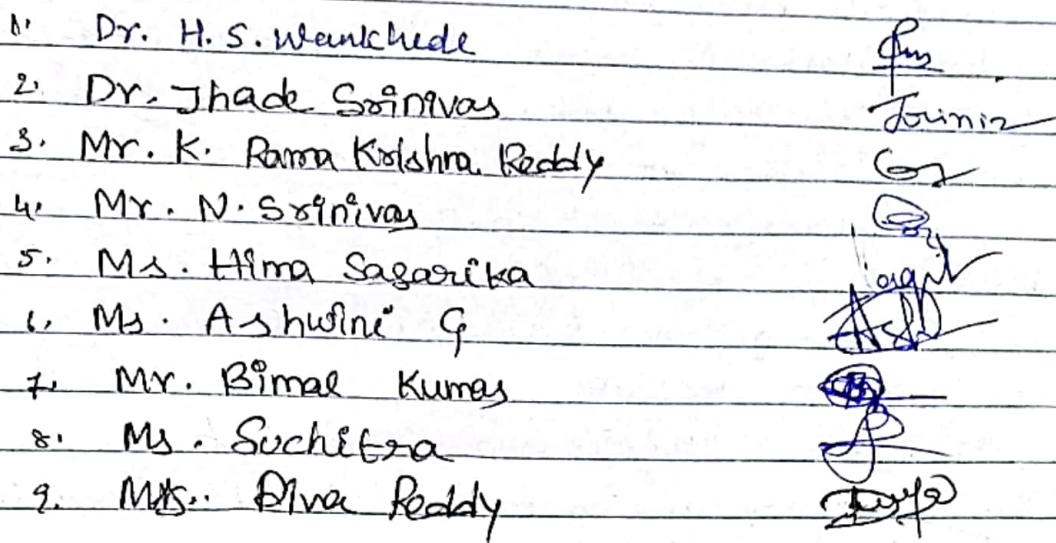 1. Dr. H. S. Wankhede
2. Dr. Jhade Srinivas
3. Mr. K. Rama Krishna Reddy
4. Mr. N. Srinivas
5. Ms. Hima Sagarika
6. Ms. Ashwini G
7. Mr. Bimal Kumar
8. Ms. Suchitra
9. Reddy